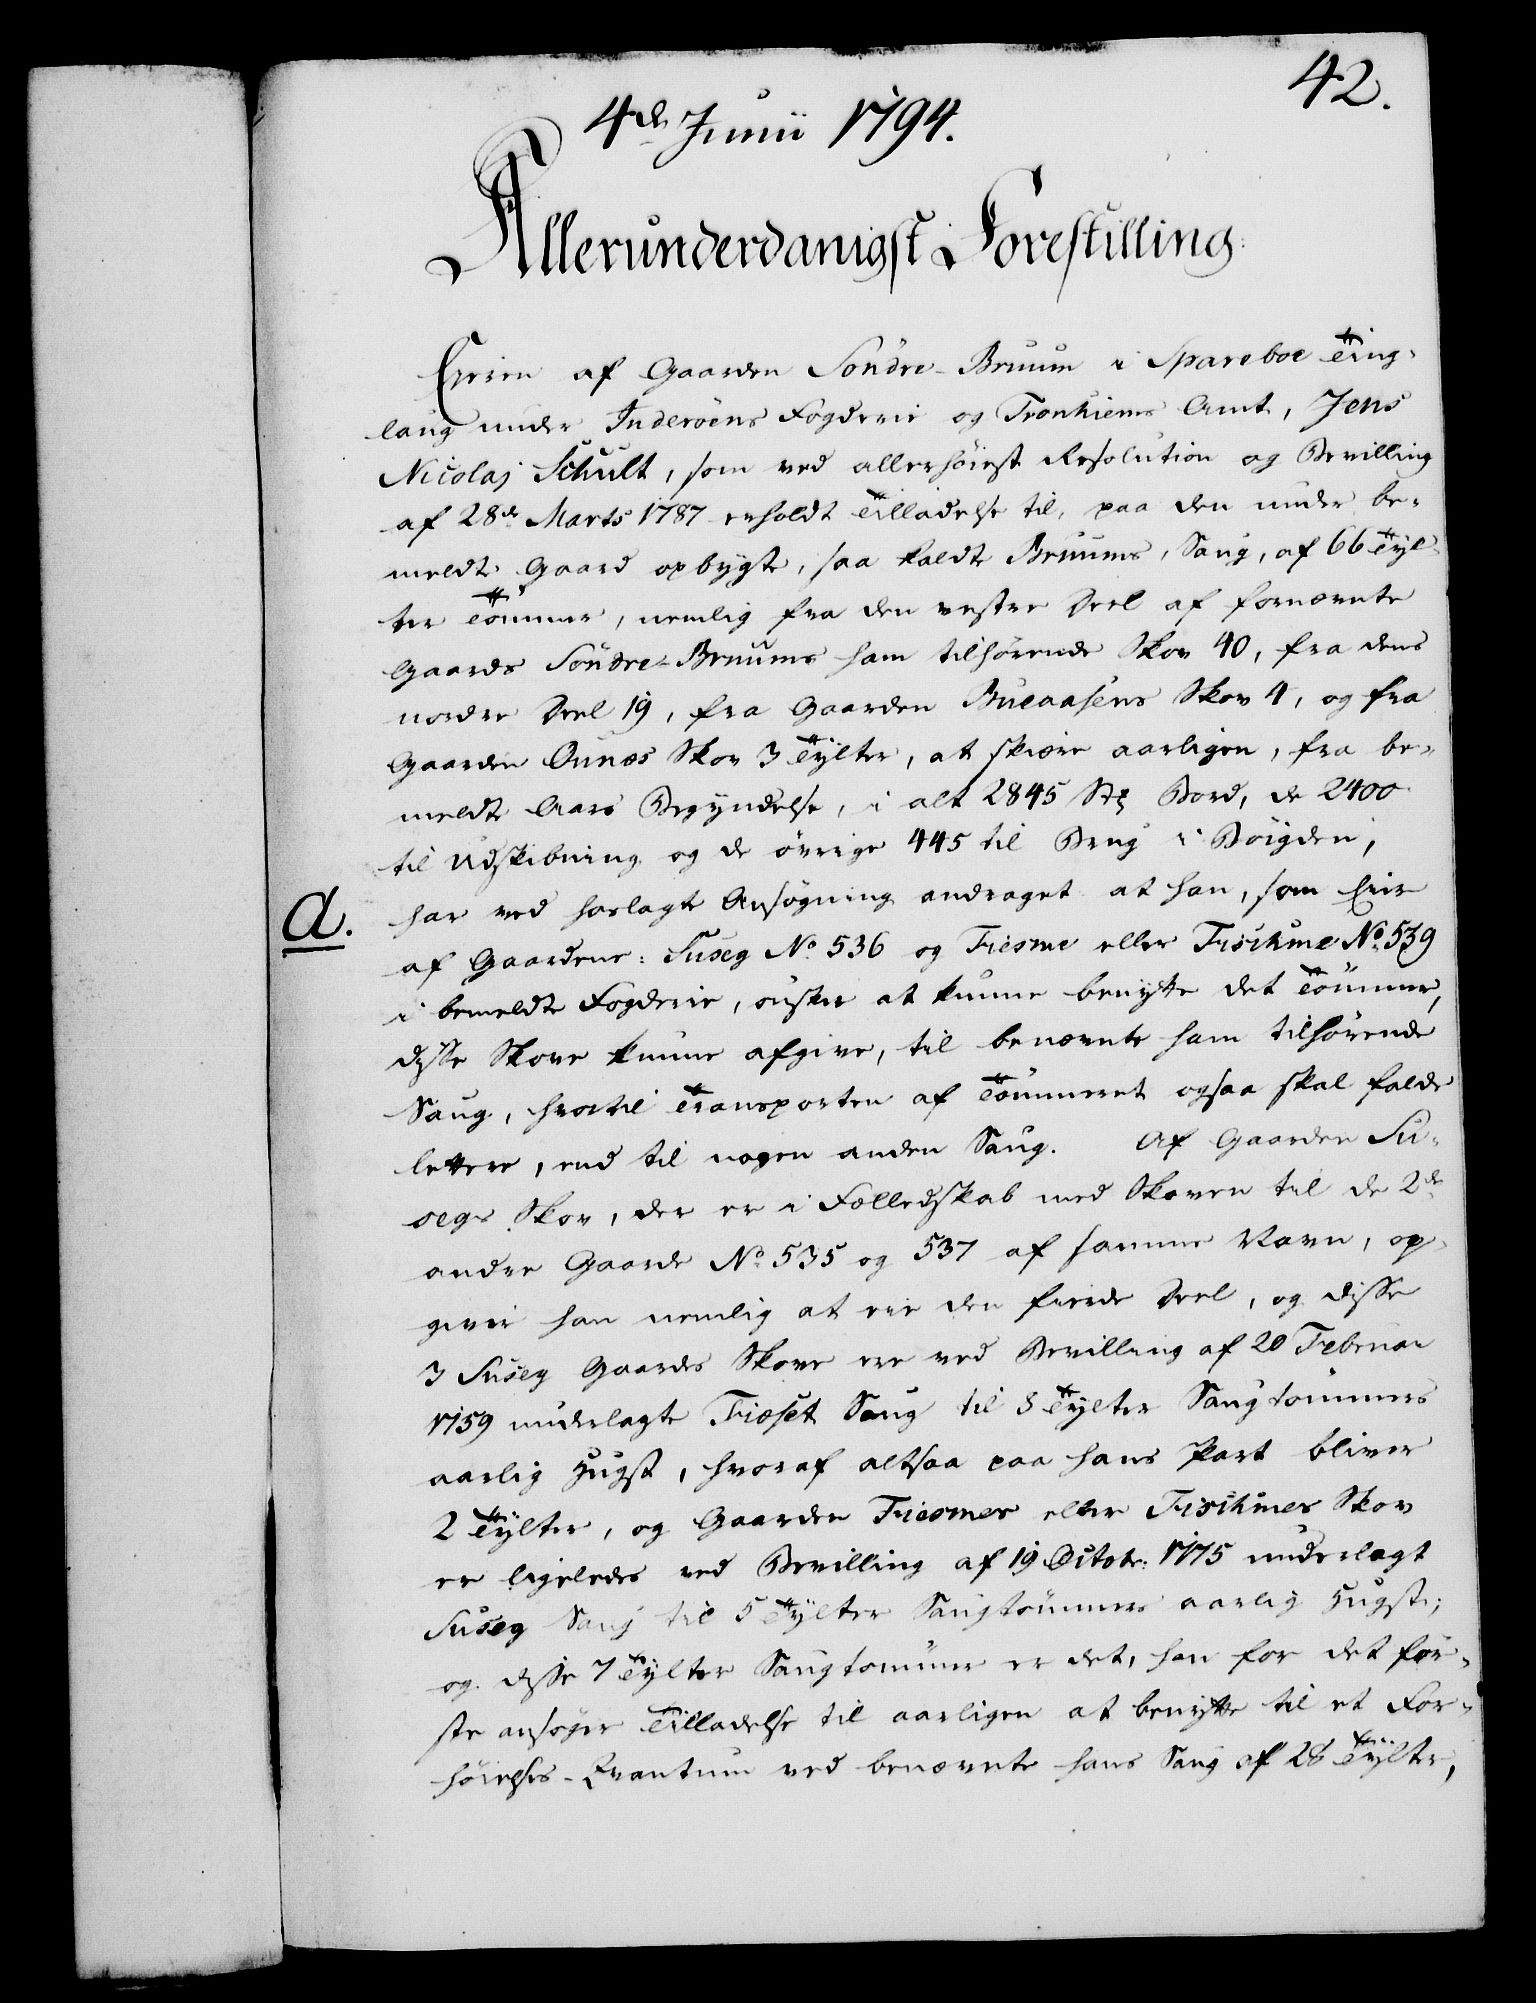 42.
4de Junii 1794.
Allerunderdanigst Forestilling.
Eieren af Gaarden Söndre-Bruum i Spareboe Ting-
laug under Inderöens Fogderie og Tronhiems Amt, Jens
Nicolaj Schult, som ved allerhöiest Resolution og Bevilling
af 28de Marts 1787 erholdt Tilladelse til, paa den under be-
meldte Gaard opbygte, saa kaldte Bruums, Saug, af 66 Tyl-
ter Tömmer, nemlig fra den vestre Deel af fornævnte
Gaards Söndre-Bruums ham tilhörende Skov 40, fra dens
nordre Deel 19, fra Gaarden Bueaasens Skov 4, og fra
Gaarden Qunæs Skov 3 Tylter, at skiære aarligen, fra be-
meldte Aars Begyndelse, i alt 2845 Stk Bord, de 2400
til Udskibning og de övrige 445 til Brug i Böigden;
A. har ved hoslagte Ansögning andraget at han, som Eier
af Gaardene: Suseg No 536 og Fiesme eller Fisikme No 539
i bemeldte Fogderie, önsker at kunne benytte det Tömmer,
disse Skove kunne afgive, til benævnte ham tilhörende
Saug, hvortil Transporten af Tömmeret ogsaa skal falde
lettere, end til nogen anden Saug. Af Gaarden Su-
segs Skov, der er i Fælledskab med Skoven til de 2de
andre Gaarde No 535 og 537 af samme Navn, op-
giver han nemlig at eie den fierde Deel, og disse
3 Suseg Gaardes Skove ere ved Bevilling af 20 Februar
1759 underlagte Fiæset Saug til 8 Tylter Saugtömmers
aarlig Hugst, hvoraf altsaa paa hans Part bliver
2 Tylter, og Gaarden Fiesmes eller Fisikmes Skov
er ligeledes ved Bevilling af 19 Octobr: 1775 underlagt
Suseg Saug til 5 Tylter Saugtömmers aarlig Hugst;
og disse 7 Tylter Saugtömmer er det, han for det för-
ste ansöger Tilladelse til aarligen at benytte til et For-
höielses-Qvantum ved benævnte hans Saug af 28 Tylter,